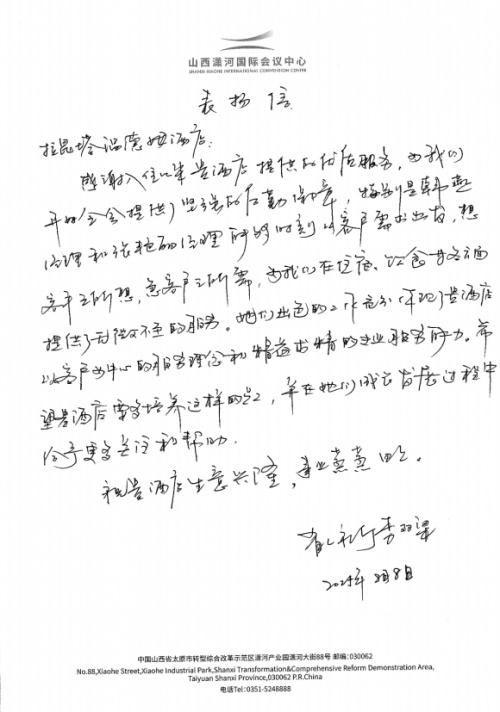 山西潇河国际会议中心
SHANXI XIAOHE INTERNATIONAL CONVENTION CENTER
表扬信
拉昆塔温德姆酒店:
感谢入住以来贵酒店提供的优质服务,为我们
开好全会提供了坚强的后勤保障,特别是韩
经理和张艳丽经理能够时刻以客户需求出发,想
客户之所想,急客户之所需,为我们在住宿、饮食等各方面
提供了无微不至的服务。她们出色的工作充分体现了贵酒店
以客户为中心的服务理念和精益求精的专业服务能力。希
望贵酒店多多培养这样的员工,并在她们成长发展过程中
给予更多关注和帮助。
祝贵酒店生意兴隆,事业蒸蒸日上。
李
8日
中国山西省太原市转型综合改革示范区潇河产业园潇河大街88号 邮编:030062
No.88,Xiaohe Street,Xiaohe Industrial Park,Shanxi Transformation&Comprehensive Reform Demonstration Area,
Taiyuan Shanxi Province,030062 P.R.China
电话Tel:0351-5248888